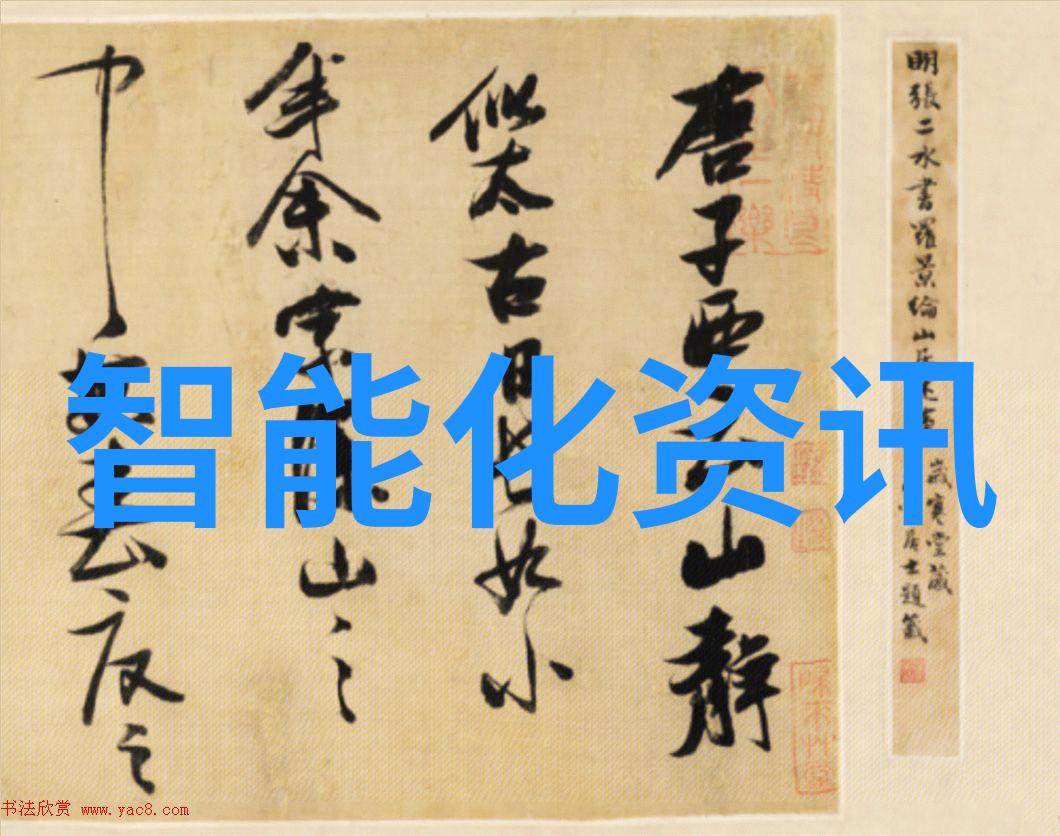 明張二水書羅景綸山
歲寒堂藏
居士題簽
唐子西云山靜
似太古日長如小
年余家深山之
中每春夏之
智能化资讯
书法欣赏 www.yac8.com